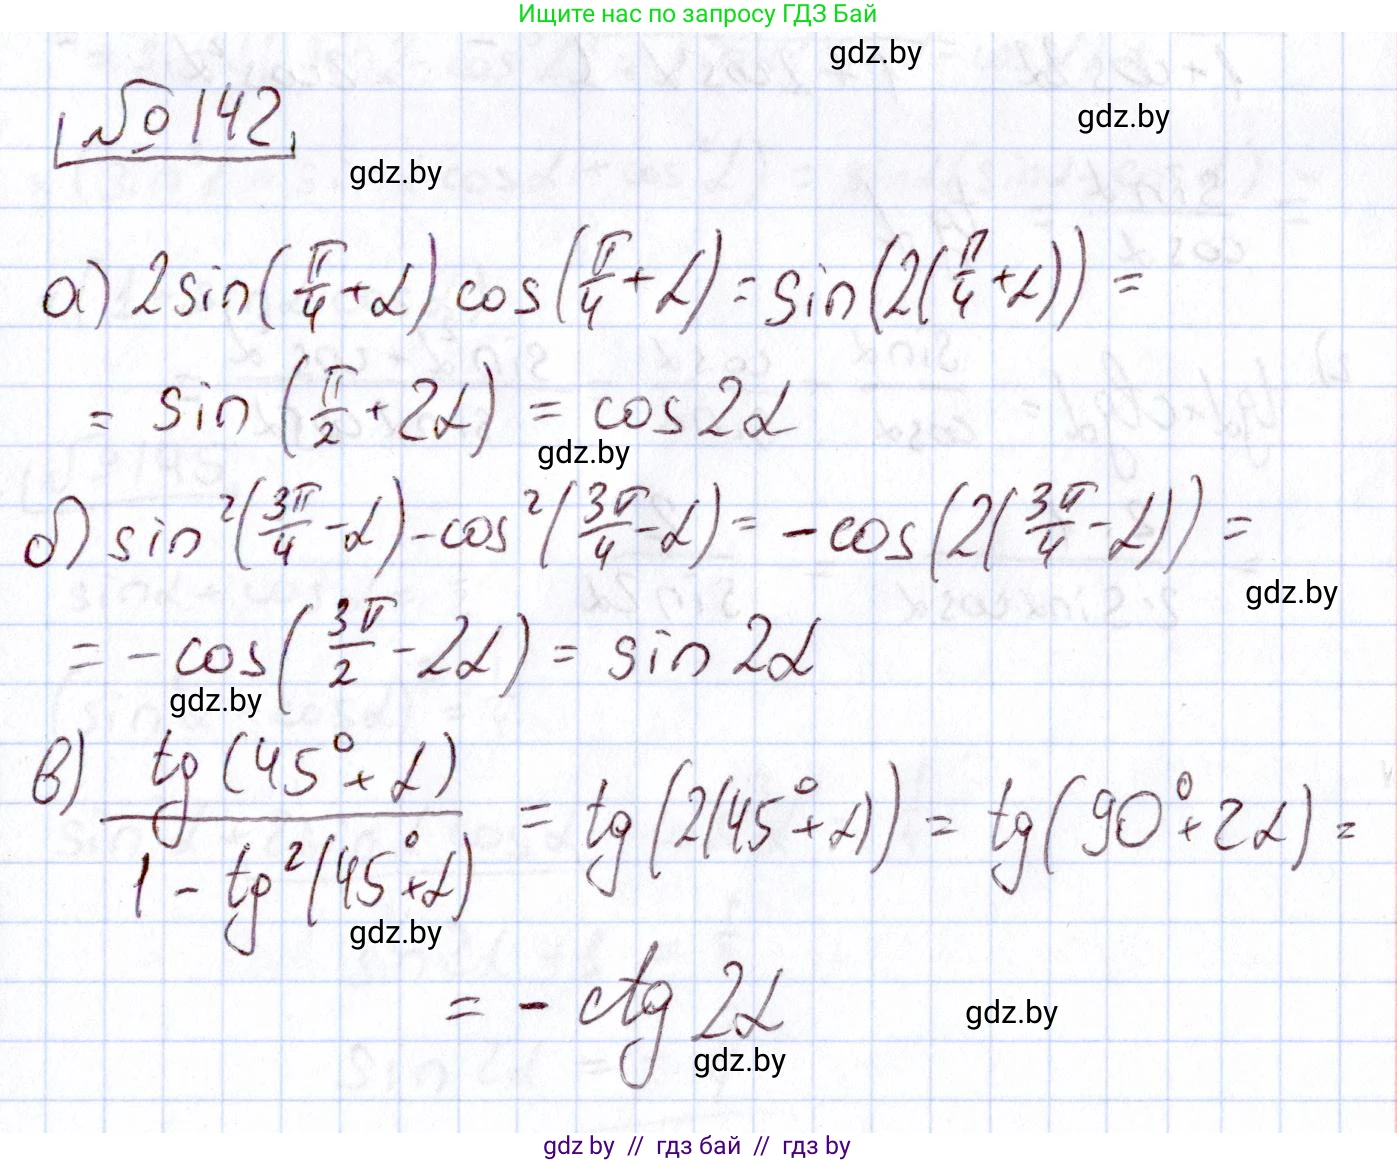 Ищите нас по запросу ГДЗ Бай
gdz.by
gdz.by
№ 142
gdz.by
а) 2sin(π/4 + α) cos(π/4 + α) = sin(2(π/4 + α)) =
= sin(π/2 + 2α) = cos 2α
gdz.by
б) sin²(3π/4 - α) - cos²(3π/4 - α) = - cos(2(3π/4 - α)) =
gdz.by
= - cos(3π/2 - 2α) = sin 2α
gdz.by
в) tg(45° + α) / 1 - tg²(45° + α) = tg(2(45° + α)) = tg(90° + 2α) =
gdz.by
= - ctg 2α
gdz.by
gdz.by
gdz by // гдз бай // гдз by